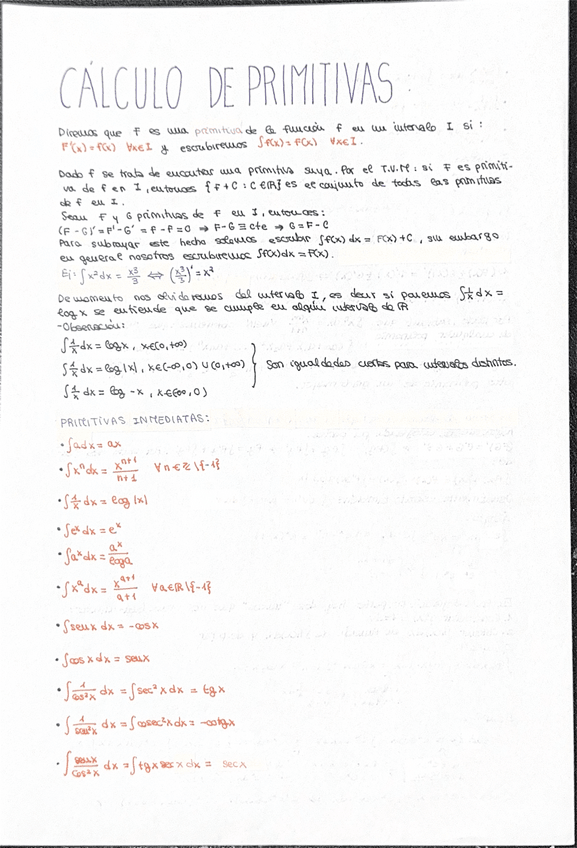 CÁLCULO DE PRIMITIVAS
Diremos que F es una primitiva de la función f en un intervalo I si:
F'(x) = f(x) ∀x∈I y escribiremos ∫f(x) = F(x) ∀x∈I.
Dado f se trata de encontrar una primitiva suya. Por el T.V.M: si F es primiti-
va de f en I, entonces {F + C : C∈ℝ} es el conjunto de todas las primitivas
de f en I.
Sean F y G primitivas de f en I, entonces:
(F - G)' = F' - G' = f - f = 0 ⇒ F - G ≡ cte ⇒ G = F - C
Para subrayar este hecho solemos escribir ∫f(x) dx = F(x) + C, sin embargo
en general nosotros escribiremos ∫f(x)dx = F(x).
Ej: ∫x²dx = x³/3 ⟺ (x³/3)' = x²
De momento nos olvidaremos del intervalo I, es decir si ponemos ∫1/x dx =
log x se entiende que se cumple en algún intervalo de ℝ
- Observación:
∫1/x dx = log x, x∈(0, +∞)
∫1/x dx = log |x|, x∈(-∞, 0) ∪ (0, +∞) } Son igualdades ciertas para intervalos distintos.
∫1/x dx = log -x, x∈(∞, 0)
PRIMITIVAS INMEDIATAS:
• ∫a dx = ax
• ∫xⁿ dx = xⁿ⁺¹/n+1 ∀n∈ℤ\{-1}
• ∫1/x dx = log |x|
• ∫eˣ dx = eˣ
• ∫aˣ dx = aˣ/log a
• ∫xᵃ dx = xᵃ⁺¹/a+1 ∀a∈ℝ\{-1}
• ∫sen x dx = -cos x
• ∫cos x dx = sen x
• ∫1/cos²x dx = ∫sec² x dx = tg x
• ∫1/sen²x dx = ∫cosec²x dx = -cotg x
• ∫sen x/cos²x dx = ∫tg x sec x dx = sec x